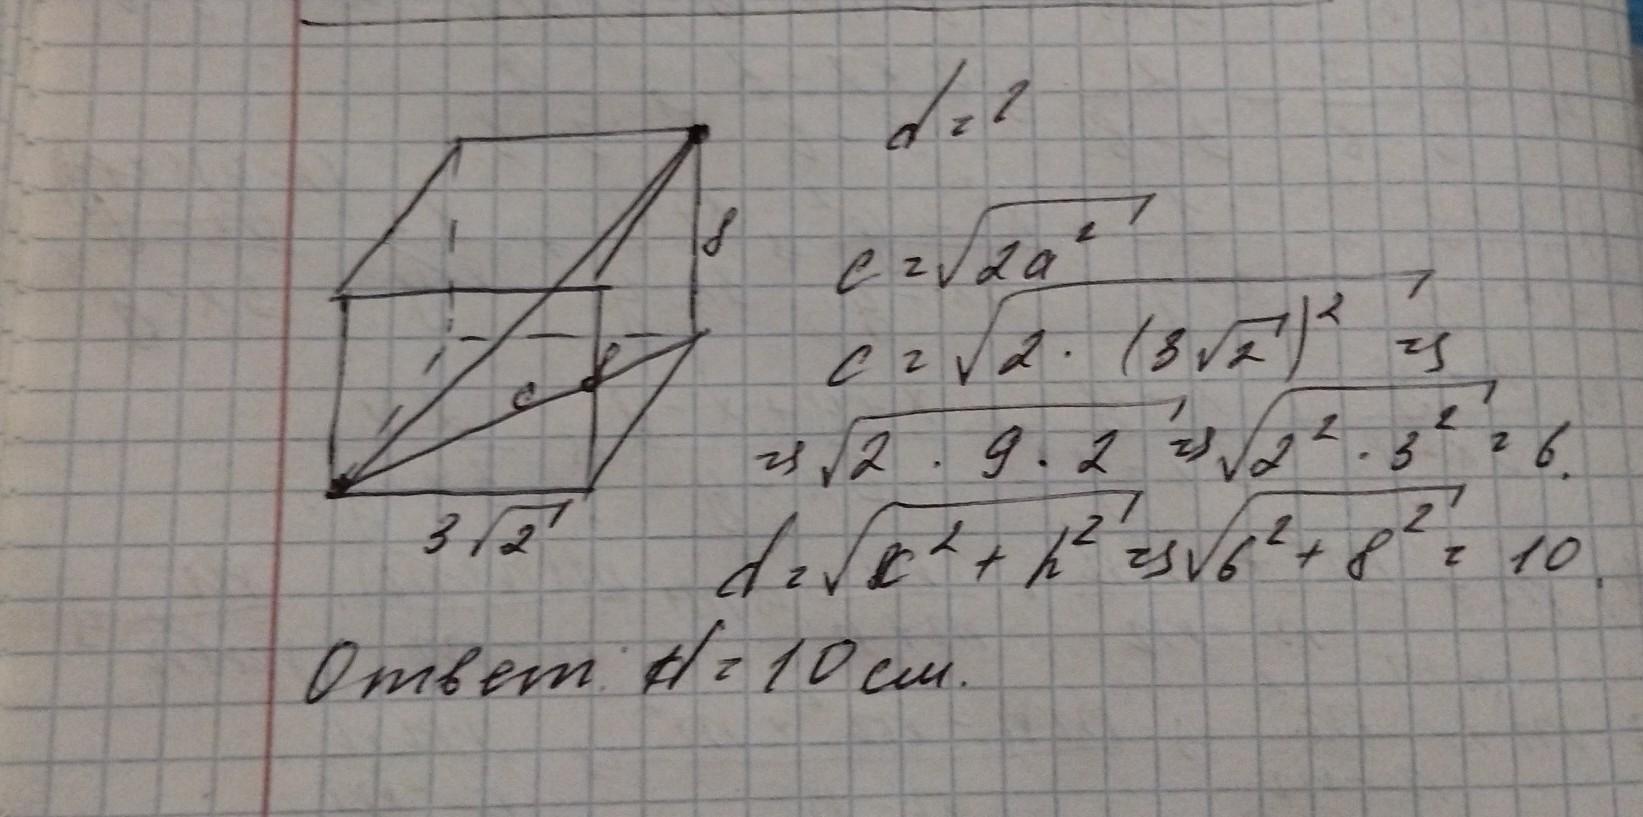 d = ?
8
c = √2a²
c = √2 · (3√2)² =
c
= √2 · 9 · 2 = √2² · 3² = 6.
3√2
d = √c² + h² = √6² + 8² = 10.
Ответ: d = 10 см.